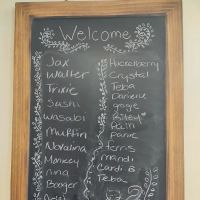 Welcome
Jax
Walter
Trixie
Sushi
Wasabi
Muffin
Noralina
Monkey
nina
Booger
Huckelberry
Crystal
Teba
Darlene
gage
Rain
panic
ferris
mandi
Cardi B
Teba